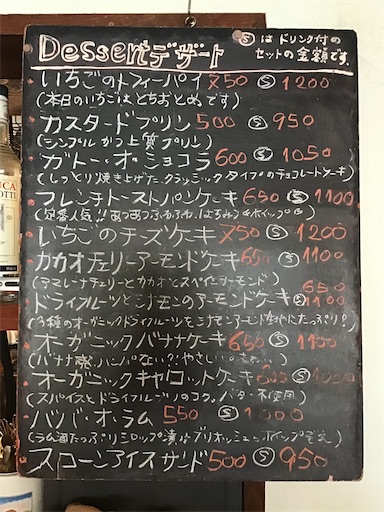 Dessert デザート
Ⓢは ドリンク付の
セットの金額です。
いちごのトフィーパイ 750 Ⓢ 1200
(本日のいちごは とちおとめ です)
カスタードプリン 500 Ⓢ 950
(シンプル かつ 上質プリン)
ガトー・オ・ショコラ 600 Ⓢ 1050
(しっとり焼き上げた クラシック タイプのチョコレートケーキ)
フレンチトーストパンケーキ 650 Ⓢ 1100
(定番人気!! あつあつふわふわ、はちみつ&ホイップ)
いちごのチーズケーキ 750 Ⓢ 1200
カカオチェリーアーモンドケーキ 65 Ⓢ 1100
(アマレーナチェリーとカカオとスペインアーモンド)
ドライフルーツとシナモンのアーモンドケーキ 650 Ⓢ 1100
(3種のオーガニックドライフルーツをシナモンアーモンド生地にたっぷり?)
オーガニックバナナケーキ 650 Ⓢ 1100
(バナナ感、ハンパない?やさしい
オーガニックキャロットケーキ Ⓢ
(スパイスとドライフルーツのコク。バター不使用)
ババ・オ・ラム 550 Ⓢ 1000
(ラム酒たっぷりシロップ漬けブリオッシュとホイップ
スコーンアイスサンド 500 Ⓢ 950